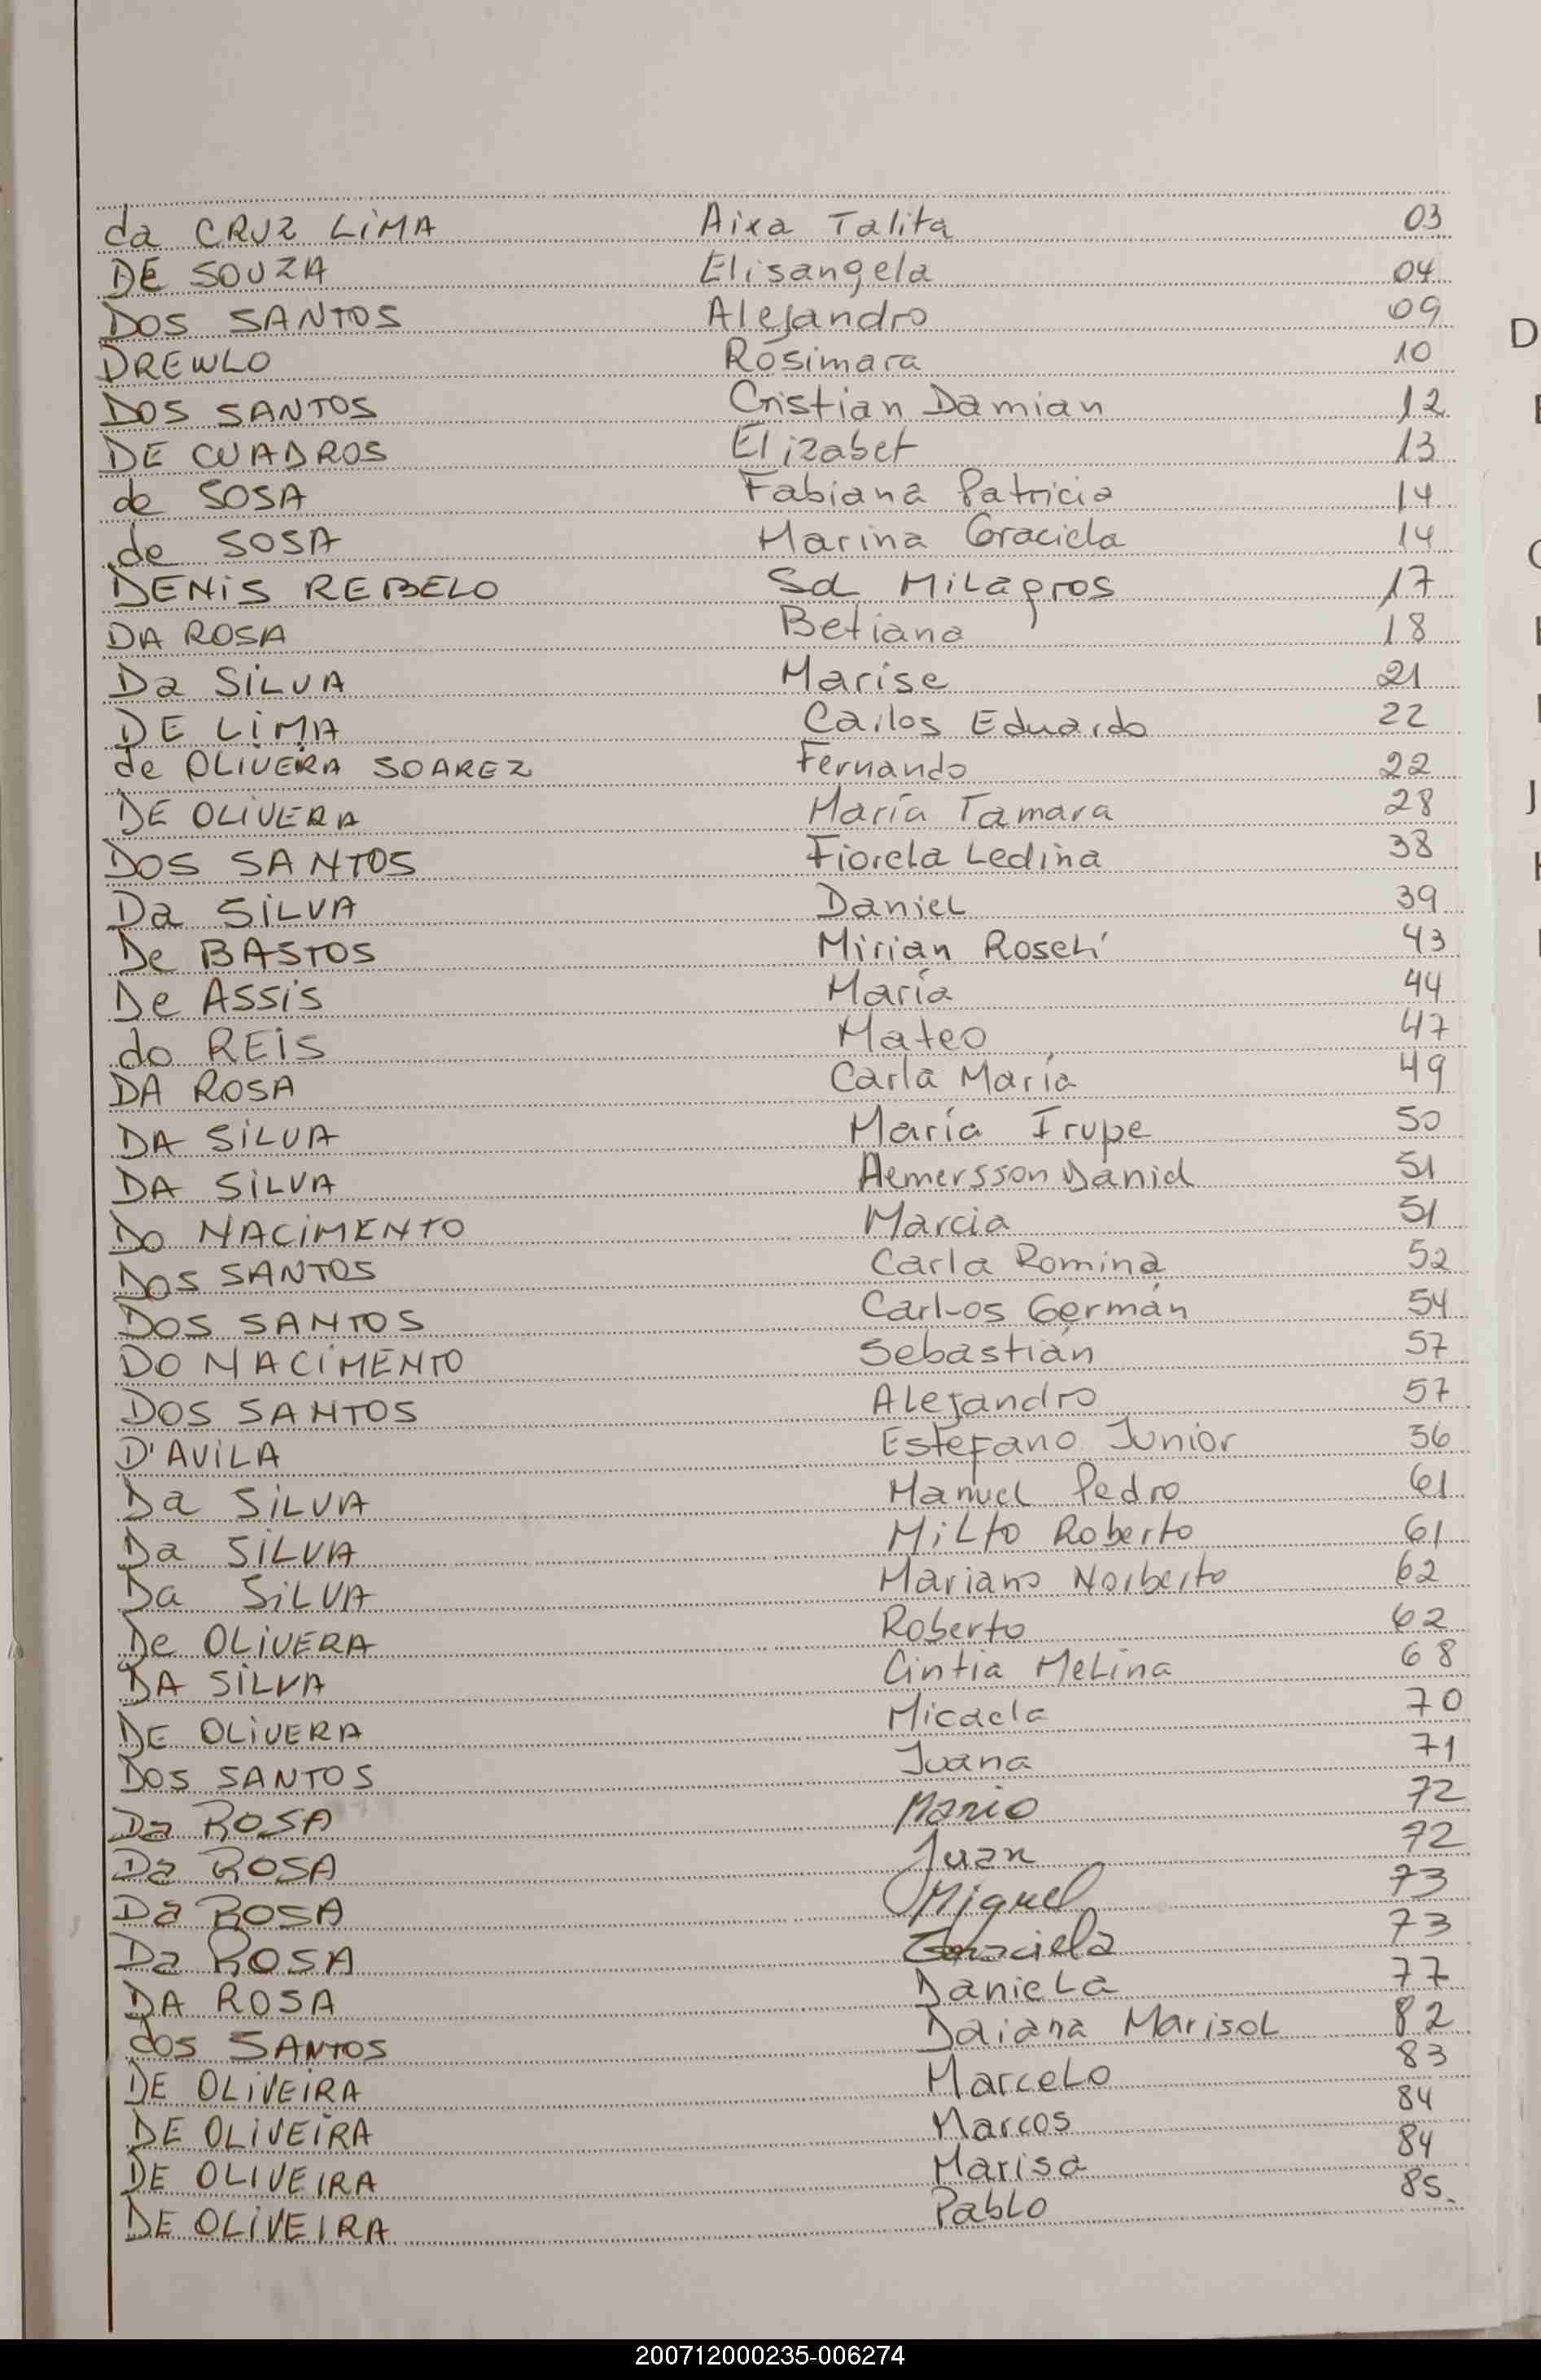 da CRUZ LIMA Aixa Talita 03
DE SOUZA Elisangela 04
DOS SANTOS Alejandro 09
D
DREWLO Rosimara 10
DOS SANTOS Cristian Damian 12
DE CUADROS Elizabet 13
de SOSA Fabiana Patricia 14
de SOSA Marina Graciela 14
DENIS REBELO Sol Milagros 17
DA ROSA Betiana 18
Da SILVA Marise 21
DE LIMA Carlos Eduardo 22
de OLIVERA SOAREZ Fernando 22
DE OLIVERA María Tamara 28
DOS SANTOS Fiorela Ledina 38
Da SILVA Daniel 39
De BASTOS Mirian Roseli 43
De ASSIS María 44
do REIS Mateo 47
DA ROSA Carla María 49
DA SILVA María Irupe 50
DA SILVA Aemersson Daniel 51
Do NACIMENTO Marcia 51
DOS SANTOS Carla Romina 52
DOS SANTOS Carlos Germán 54
DO NACIMENTO Sebastián 57
DOS SANTOS Alejandro 57
D'AVILA Estefano Junior 56
Da SILVA Manuel Pedro 61
Da SILVA Milto Roberto 61
Da SILVA Mariano Norberto 62
De OLIVERA Roberto 62
DA SILVA Cintia Melina 68
DE OLIVERA Micaela 70
DOS SANTOS Juana 71
Da ROSA Mario 72
Da ROSA Juan 72
Da ROSA Miguel 73
Da ROSA Graciela 73
DA ROSA Daniela 77
dos SANTOS Daiana Marisol 82
DE OLIVEIRA Marcelo 83
DE OLIVEIRA Marcos 84
DE OLIVEIRA Marisa 84
DE OLIVEIRA Pablo 85.
200712000235-006274